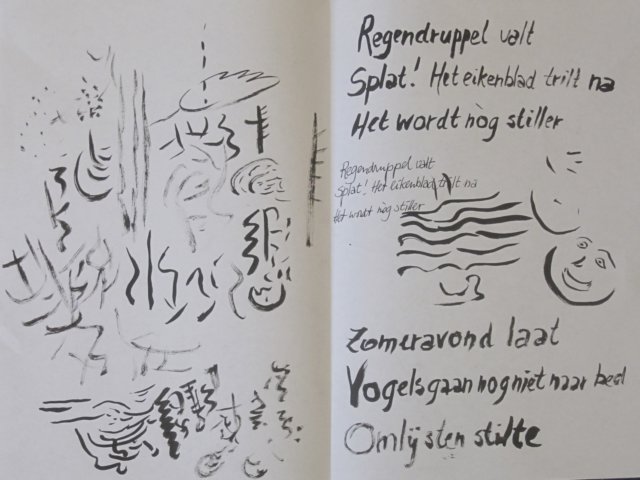 Regendruppel valt
Splat! Het eikenblad trilt na
Het wordt nòg stiller
Regendruppel valt
Splat! Het eikenblad trilt na
Het wordt nòg stiller
Zomeravond laat
Vogels gaan nog niet naar bed
Omlijsten stilte